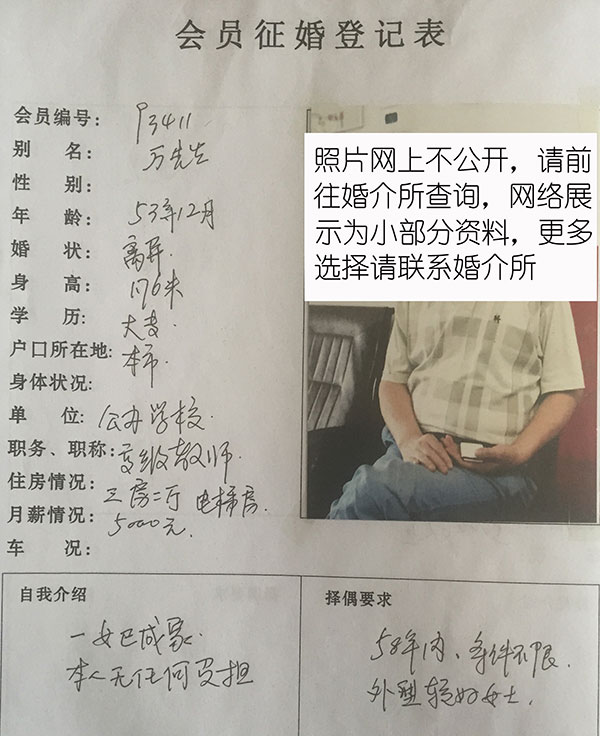 会员征婚登记表
会员编号: P3411
别 名: 万先生
性 别:
年 龄: 53年12月
婚 状: 离异.
身 高: 1.76米
学 历: 大专.
户口所在地: 本市.
身体状况:
单 位: 公办学校.
职务、职称: 高级教师.
住房情况: 三房二厅 电梯房.
月薪情况: 5000元.
车 况:
照片网上不公开，请前
往婚介所查询，网络展
示为小部分资料，更多
选择请联系婚介所
自我介绍
一女已成家.
本人无任何负担
择偶要求
58年内、条件不限.
外型较好女士.